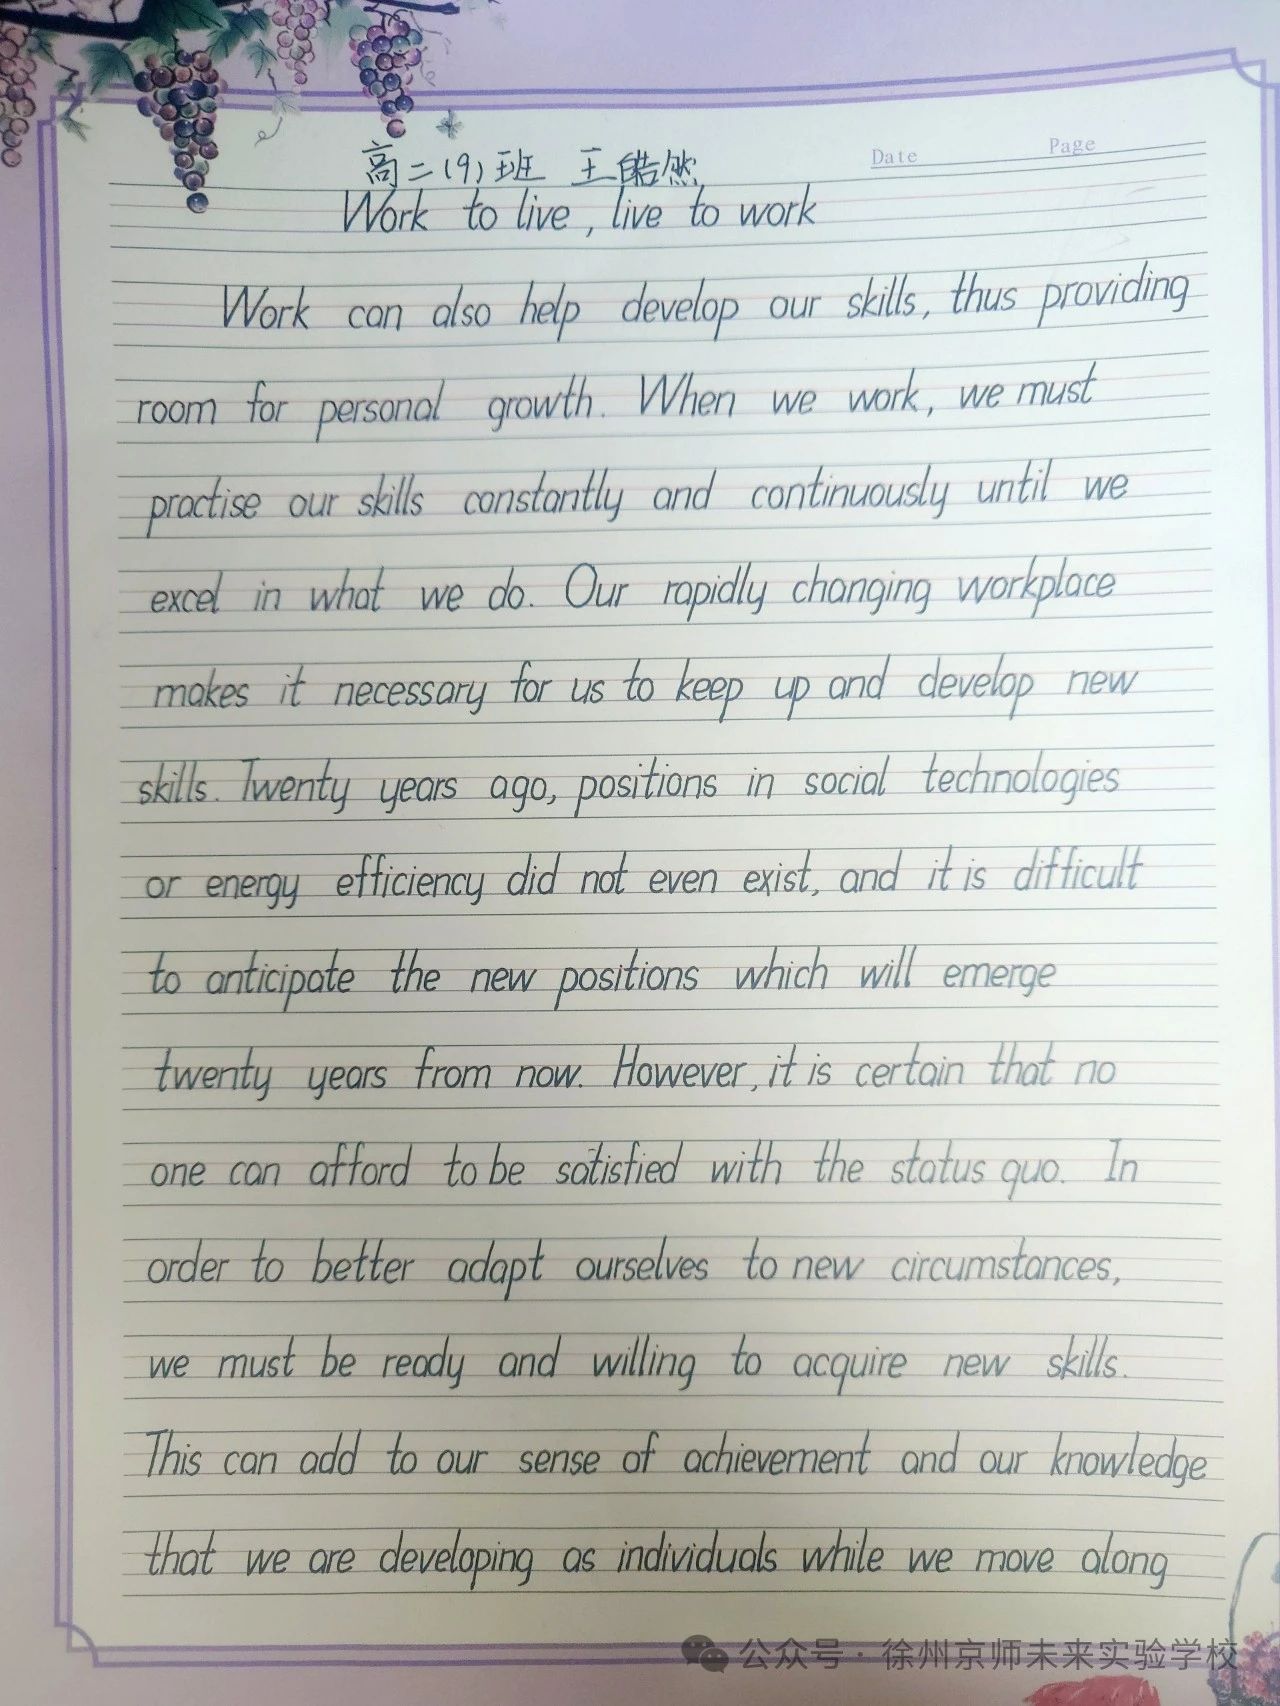 Date Page
高二(9)班 王皓然
Work to live, live to work
Work can also help develop our skills, thus providing
room for personal growth. When we work, we must
practise our skills constantly and continuously until we
excel in what we do. Our rapidly changing workplace
makes it necessary for us to keep up and develop new
skills. Twenty years ago, positions in social technologies
or energy efficiency did not even exist, and it is difficult
to anticipate the new positions which will emerge
twenty years from now. However, it is certain that no
one can afford to be satisfied with the status quo. In
order to better adapt ourselves to new circumstances,
we must be ready and willing to acquire new skills.
This can add to our sense of achievement and our knowledge
that we are developing as individuals while we move along
公众号·徐州京师未来实验学校